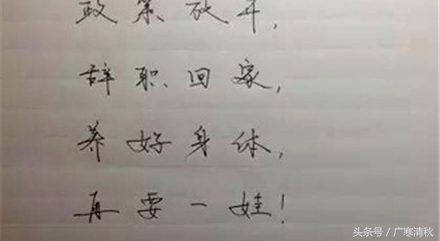 政策放开，
辞职回家，
养好身体，
再要一娃！
头条号／广寒清秋